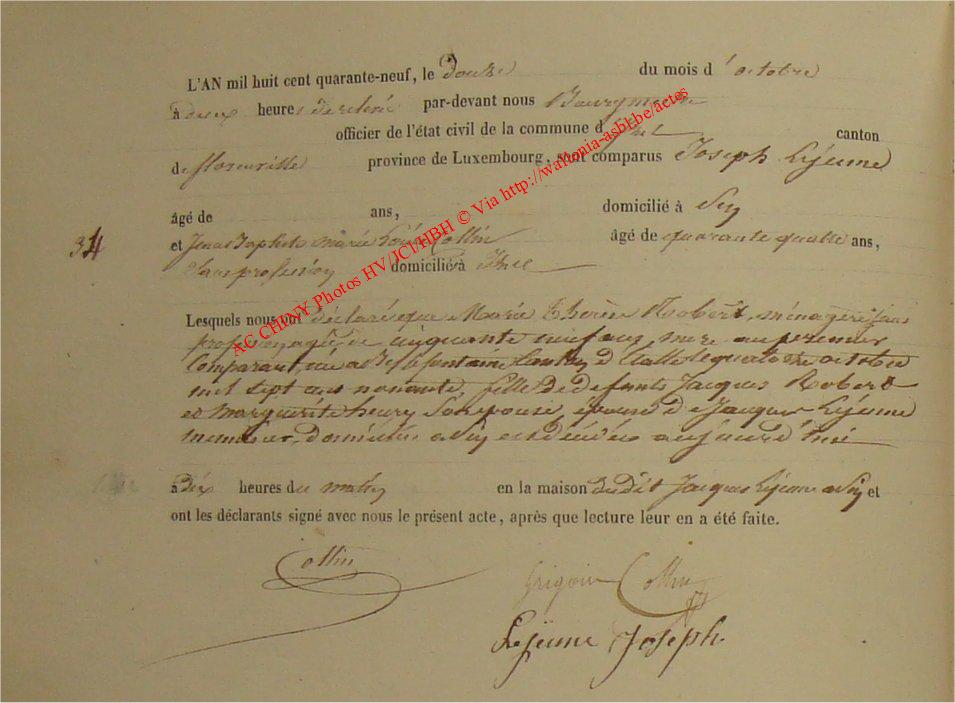 L'AN mil huit cent quarante-neuf, le Douze du mois d'octobre
à deux heures de relevée par-devant nous Bourgmestre
officier de l'état civil de la commune d canton
de florenville province de Luxembourg, sont comparus Joseph Lejeune
âgé de ans, domicilié à
34 et Jean Baptiste marie Collin âgé de quarante quatre ans,
Sans profession domicilié à
Lesquels nous ont déclaré que Marie Thérèse Robert, ménagère sans
profession, agée de cinquante neuf ans, mere au premier
comparant, née a la fontaine le quatorze octobre
mil sept cent nonante, fille de defunts Jacques Robert
et Marguerite henry Son epouse, épouse de Jacques Lejeune
domiciliée a est décédée aujourd'hui
à Dix heures du matin en la maison du dit Jacques Lejeune a et
ont les déclarants signé avec nous le présent acte, après que lecture leur en a été faite.
Collin
Collin
Lejeune Joseph
AC CHINY Photos HV/JCl/HBH © Via http://wallonia-asbl.be/actes